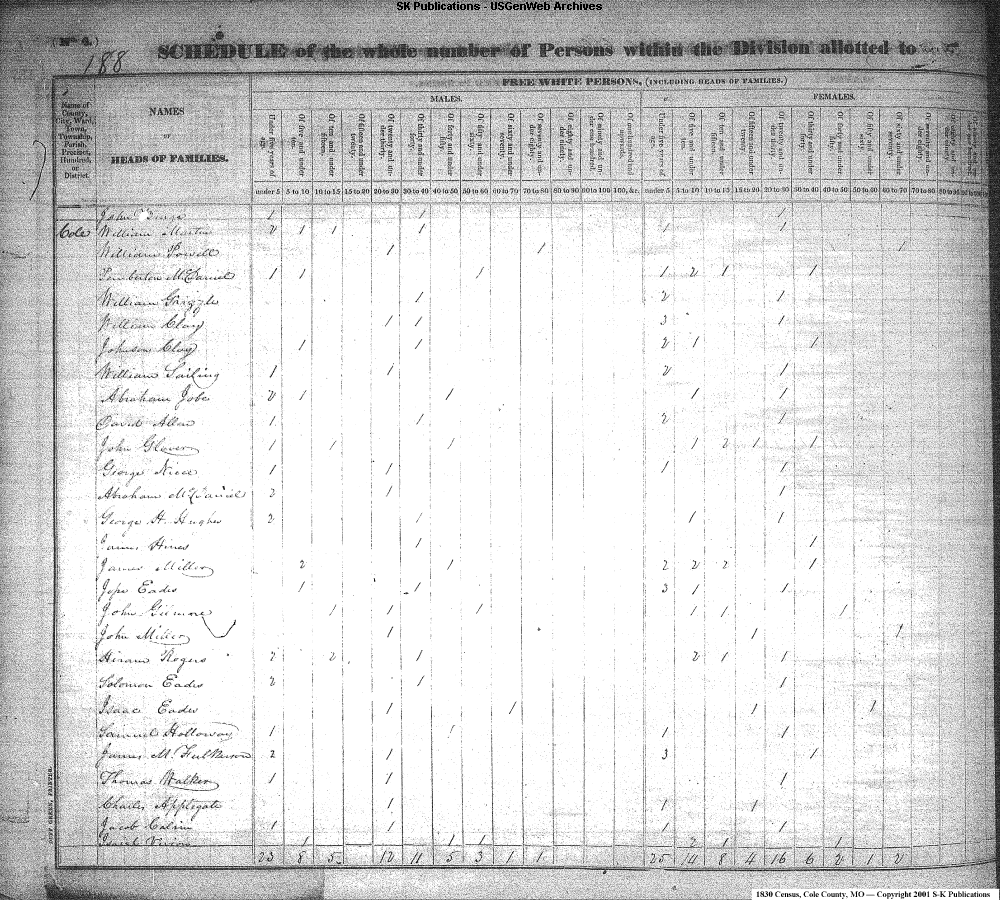 SK Publications - USGenWeb Archives
(No. 4.)
188
SCHEDULE of the whole number of Persons within the Division allotted to
FREE WHITE PERSONS, (INCLUDING HEADS OF FAMILIES.)
MALES. FEMALES.
Name of County, City, Ward, Town, Township, Parish, Precinct, Hundred, or District.
NAMES
OF
HEADS OF FAMILIES.
under 5 5 to 10 10 to 15 15 to 20 20 to 30 30 to 40 40 to 50 50 to 60 60 to 70 70 to 80 80 to 90 90 to 100 100, &c. under 5 5 to 10 10 to 15 15 to 20 20 to 30 30 to 40 40 to 50 50 to 60 60 to 70 70 to 80
John 1 1 1
Cole William Martin 2 1 1 1 1 1
William Powell 1 1 1
Pemberton McDaniel 1 1 1 1 2 1 1
William Grizzle 1 2 1
William Clay 1 1 3 1
Johnson Clay 1 1 2 1 1
William Sailing 1 1 2 1
Abraham Jobe 2 1 1 1 1
David Allen 1 1 2 1
John Glover 1 1 1 1 2 1 1
George Niece 1 1 1 1
Abraham McDaniel 2 1 1
George H. Hughes 2 1 1 1
James Hines 1 1
James Miller 2 1 2 2 2 1
Jope Eades 1 1 3 1 1
John Gilmore 1 1 1 1 1 1
John Miller 1 1 1
Hiram Rogers 2 2 1 2 1 1
Solomon Eades 2 1 1
Isaac Eades 1 1 1 1
Samuel Holloway 1 1 1 1
James M. Fulkerson 2 1 3 1
Thomas Walker 1 1 1
Charles Applegate 1 1 1
Jacob 1 1 1 1
1 1 1 2 1 1
23 8 5 12 11 5 3 1 1 25 14 8 4 16 6 2 1 2
DUFF GREEN, PRINTER.
1830 Census, Cole County, MO — Copyright 2001 S-K Publications